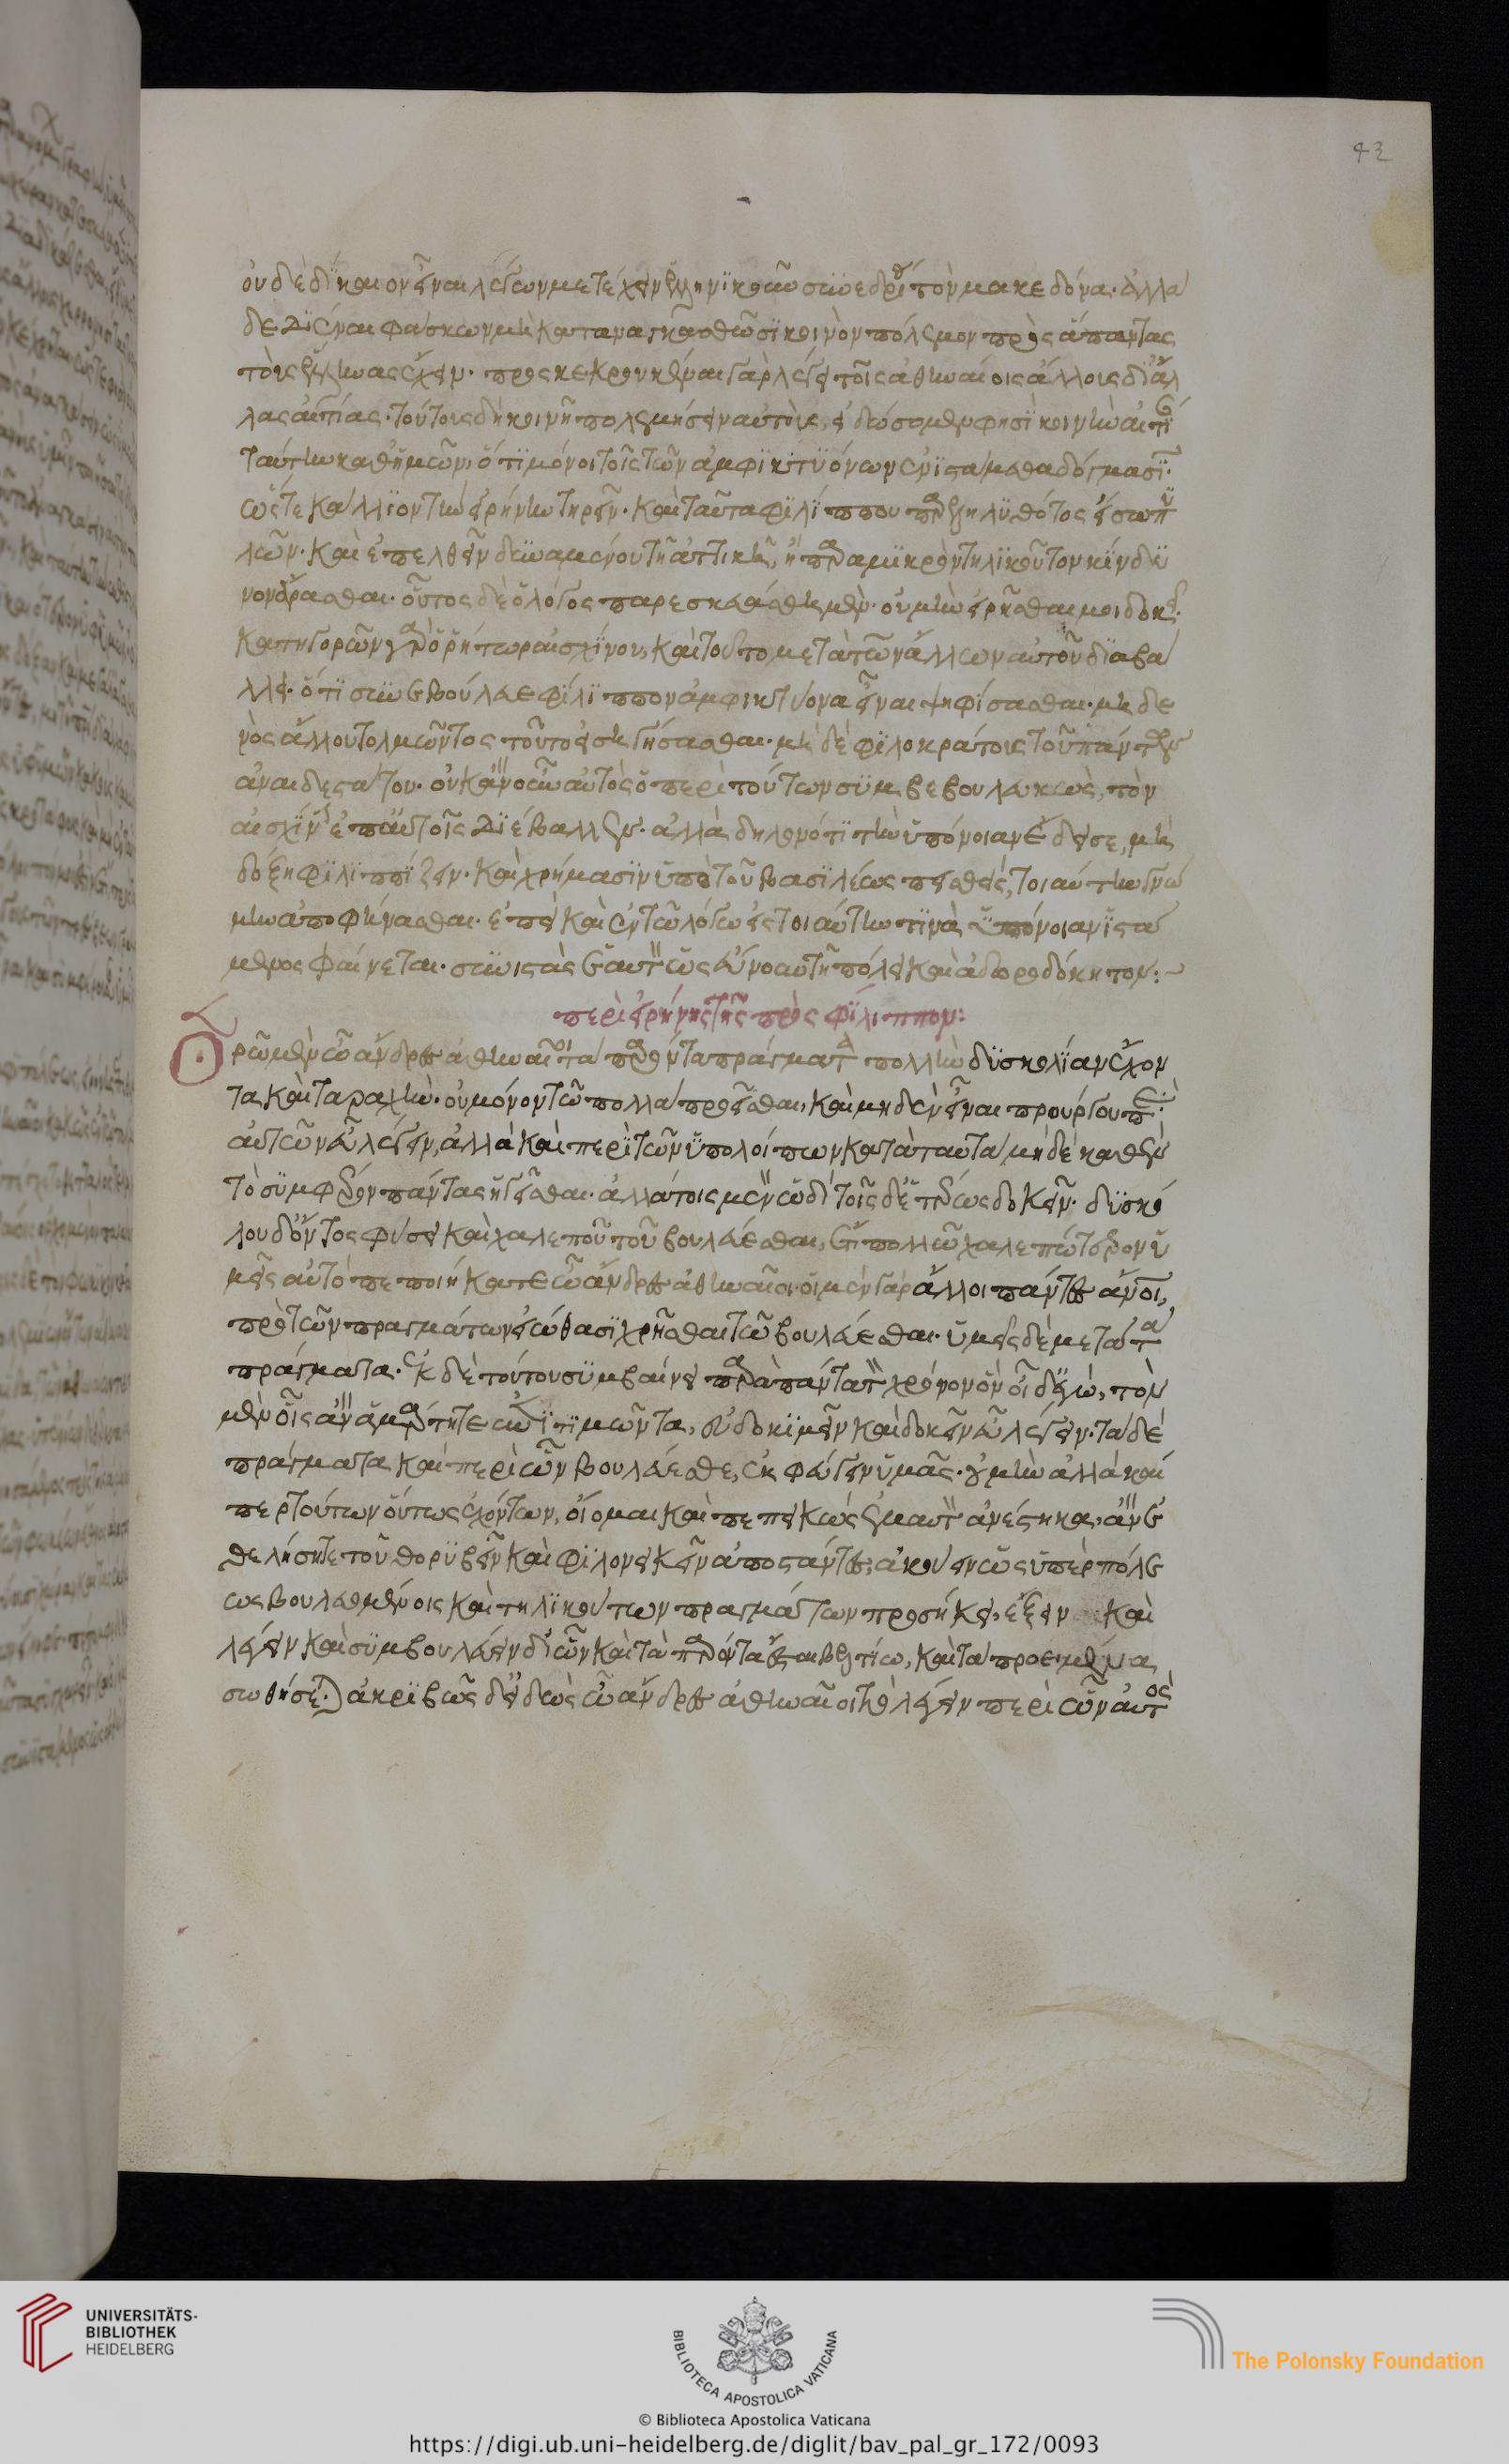 42
οὐδὲ δίκαιον εἶναι λέγων μετέχειν ἑλληνικοῦ συνεδρίου τὸν μακεδόνα. ἀλλὰ
δεδιέναι φάσκων μὴ καταναγκασθῶσι κοινὸν πόλεμον πρὸς ἅπαντας
τοὺς ἕλληνας ἔχειν. προσκεκρουκέναι γὰρ λέγει τοῖς ἀθηναίοις ἄλλοις δι' ἄλ
λας αἰτίας. τούτοις δὴ κοινῇ πολεμήσειν αὐτοὺς, εἰ δώσομεν φησὶ κοινὴν αἰτί
ταύτην καθ' ἡμῶν, ὅτι μόνοι τοῖς τῶν ἀμφικτυόνων ἐνιστάμεθα δόγμασι.
ὥστε κάλλιον τὴν εἰρήνην τηρεῖν. καὶ ταῦτα φιλίππου παρεληλυθότος εἴσω πυ
λῶν. καὶ ἐπελθεῖν δυναμένου τῇ ἀττικῇ, ἢ παρὰ μικρὸν τηλικοῦτον κίνδυ
νον ἄρασθαι. οὗτος δὲ ὁ λόγος παρεσκευάσθη μὲν. οὐ μὴν εἰρῆσθαι μοι δοκεῖ.
κατηγορῶν γὰρ ὁ ῥήτωρ αἰσχίνου, καὶ τοῦτο μετὰ τῶν ἄλλων αὐτοῦ διαβά
λλει. ὅτι συνεβούλευε φίλιππον ἀμφικτύονα εἶναι ψηφίσασθαι. μηδε
νὸς ἄλλου τολμῶντος τοῦτο εἰσηγήσασθαι. μηδὲ φιλοκράτους τοῦ πάντων
ἀναιδεστάτου. οὐκ ἂν οὖν αὐτὸς ὁ περὶ τούτων συμβεβουλευκὼς, τὸν
αἰσχίνην ἐπ' αὐτοῖς διέβαλλεν. ἀλλὰ δηλονότι τὴν ὑπόνοιαν ἔδεισε, μὴ
δόξῃ φιλιππίζειν. καὶ χρήμασιν ὑπὸ τοῦ βασιλέως πεισθεὶς, τοιαύτην γνώ
μην ἀποφήνασθαι. ἐπεὶ καὶ ἐν τῷ λόγῳ εἰς τοιαύτην τινὰ ὑπόνοιαν ἱστά
μενος φαίνεται. συνιστὰς ἑαυτὸν ὡς εὔνουν τῇ πόλει καὶ ἀδωροδόκητον:
περὶ εἰρήνης τῆς πρὸς φίλιππον:
Ὁρῶ μὲν ὦ ἄνδρες ἀθηναῖοι τὰ παρόντα πράγματα πολλὴν δυσκολίαν ἔχον
τα καὶ ταραχὴν. οὐ μόνον τῷ πολλὰ προεῖσθαι, καὶ μηδὲν εἶναι προύργου περὶ
αὐτῶν εὖ λέγειν, ἀλλὰ καὶ περὶ τῶν ὑπολοίπων κατὰ ταυτὰ μηδὲ καθ' ἓν
τὸ συμφέρον πάντας ἡγεῖσθαι. ἀλλὰ τοῖς μὲν ὡδὶ τοῖς δὲ ἑτέρως δοκεῖν. δυσκό
λου δ' ὄντος φύσει καὶ χαλεποῦ τοῦ βουλεύεσθαι, ἔτι πολλῷ χαλεπώτερον ὑ
μεῖς αὐτὸ πεποιήκατε ὦ ἄνδρες ἀθηναῖοι. οἱ μὲν γὰρ ἄλλοι πάντες ἄνοι,
πρὸ τῶν πραγμάτων εἰώθασι χρῆσθαι τῷ βουλεύεσθαι. ὑμεῖς δὲ μετὰ τὰ
πράγματα. ἐκ δὲ τούτου συμβαίνει παρὰ πάντα τὸν χρόνον ὃν οἶδ' ἐγὼ, τὸν
μὲν οἷς ἂν ἁμάρτητε ἐπιτιμῶντα, εὐδοκιμεῖν καὶ δοκεῖν εὖ λέγειν. τὰ δὲ
πράγματα καὶ περὶ ὧν βουλεύεσθε, ἐκφεύγειν ὑμᾶς. οὐ μὴν ἀλλὰ καί
περ τούτων οὕτως ἐχόντων, οἴομαι καὶ πεπεικὼς ἐμαυτὸν ἀνέστηκα, ἂν ἐ
θελήσητε τοῦ θορυβεῖν καὶ φιλονεικεῖν ἀποστάντες, ἀκούειν ὡς ὑπὲρ πόλε
ως βουλευομένοις καὶ τηλικούτων πραγμάτων προσήκει, ἕξειν καὶ
λέγειν καὶ συμβουλεύειν δι' ὧν καὶ τὰ παρόντα ἔσται βελτίω, καὶ τὰ προειμένα
σωθήσεται. ἀκριβῶς δ' εἰδὼς ὦ ἄνδρες ἀθηναῖοι τὸ λέγειν περὶ ὧν αὐτὸς
UNIVERSITÄTS-
BIBLIOTHEK
HEIDELBERG
BIBLIOTECA APOSTOLICA VATICANA
The Polonsky Foundation
© Biblioteca Apostolica Vaticana
https://digi.ub.uni-heidelberg.de/diglit/bav_pal_gr_172/0093